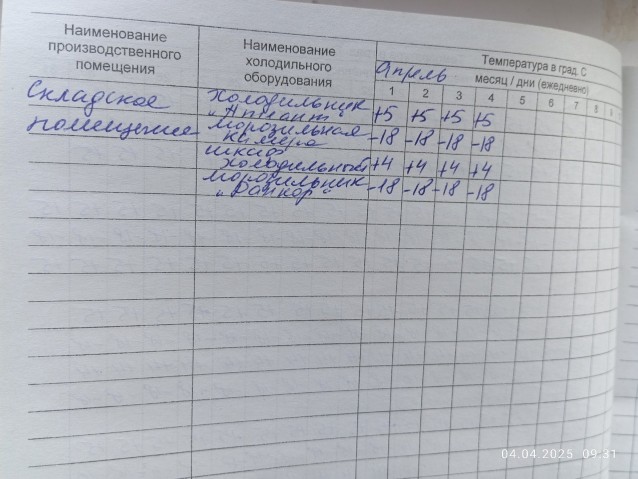 Наименование производственного помещения
Наименование холодильного оборудования
Температура в град. С
Апрель месяц / дни (ежедневно)
1 2 3 4 5 6 7 8 9
Складское Холодильник
"Атлант" +5 +5 +5 +5
помещение морозильная
камера -18 -18 -18 -18
шкаф
холодильный +4 +4 +4 +4
морозильник -18 -18 -18 -18
04.04.2025 09:31